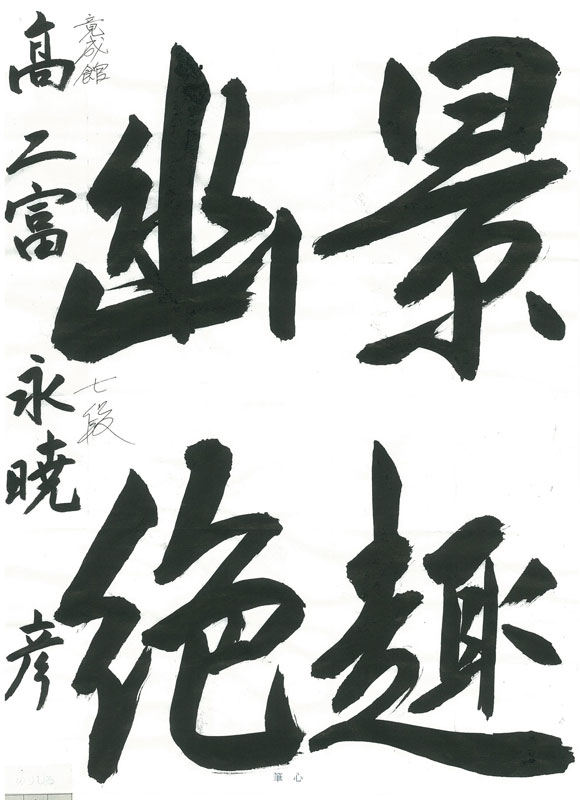 景趣
幽絶
竟成館
七段
高二富永暁彦
筆心